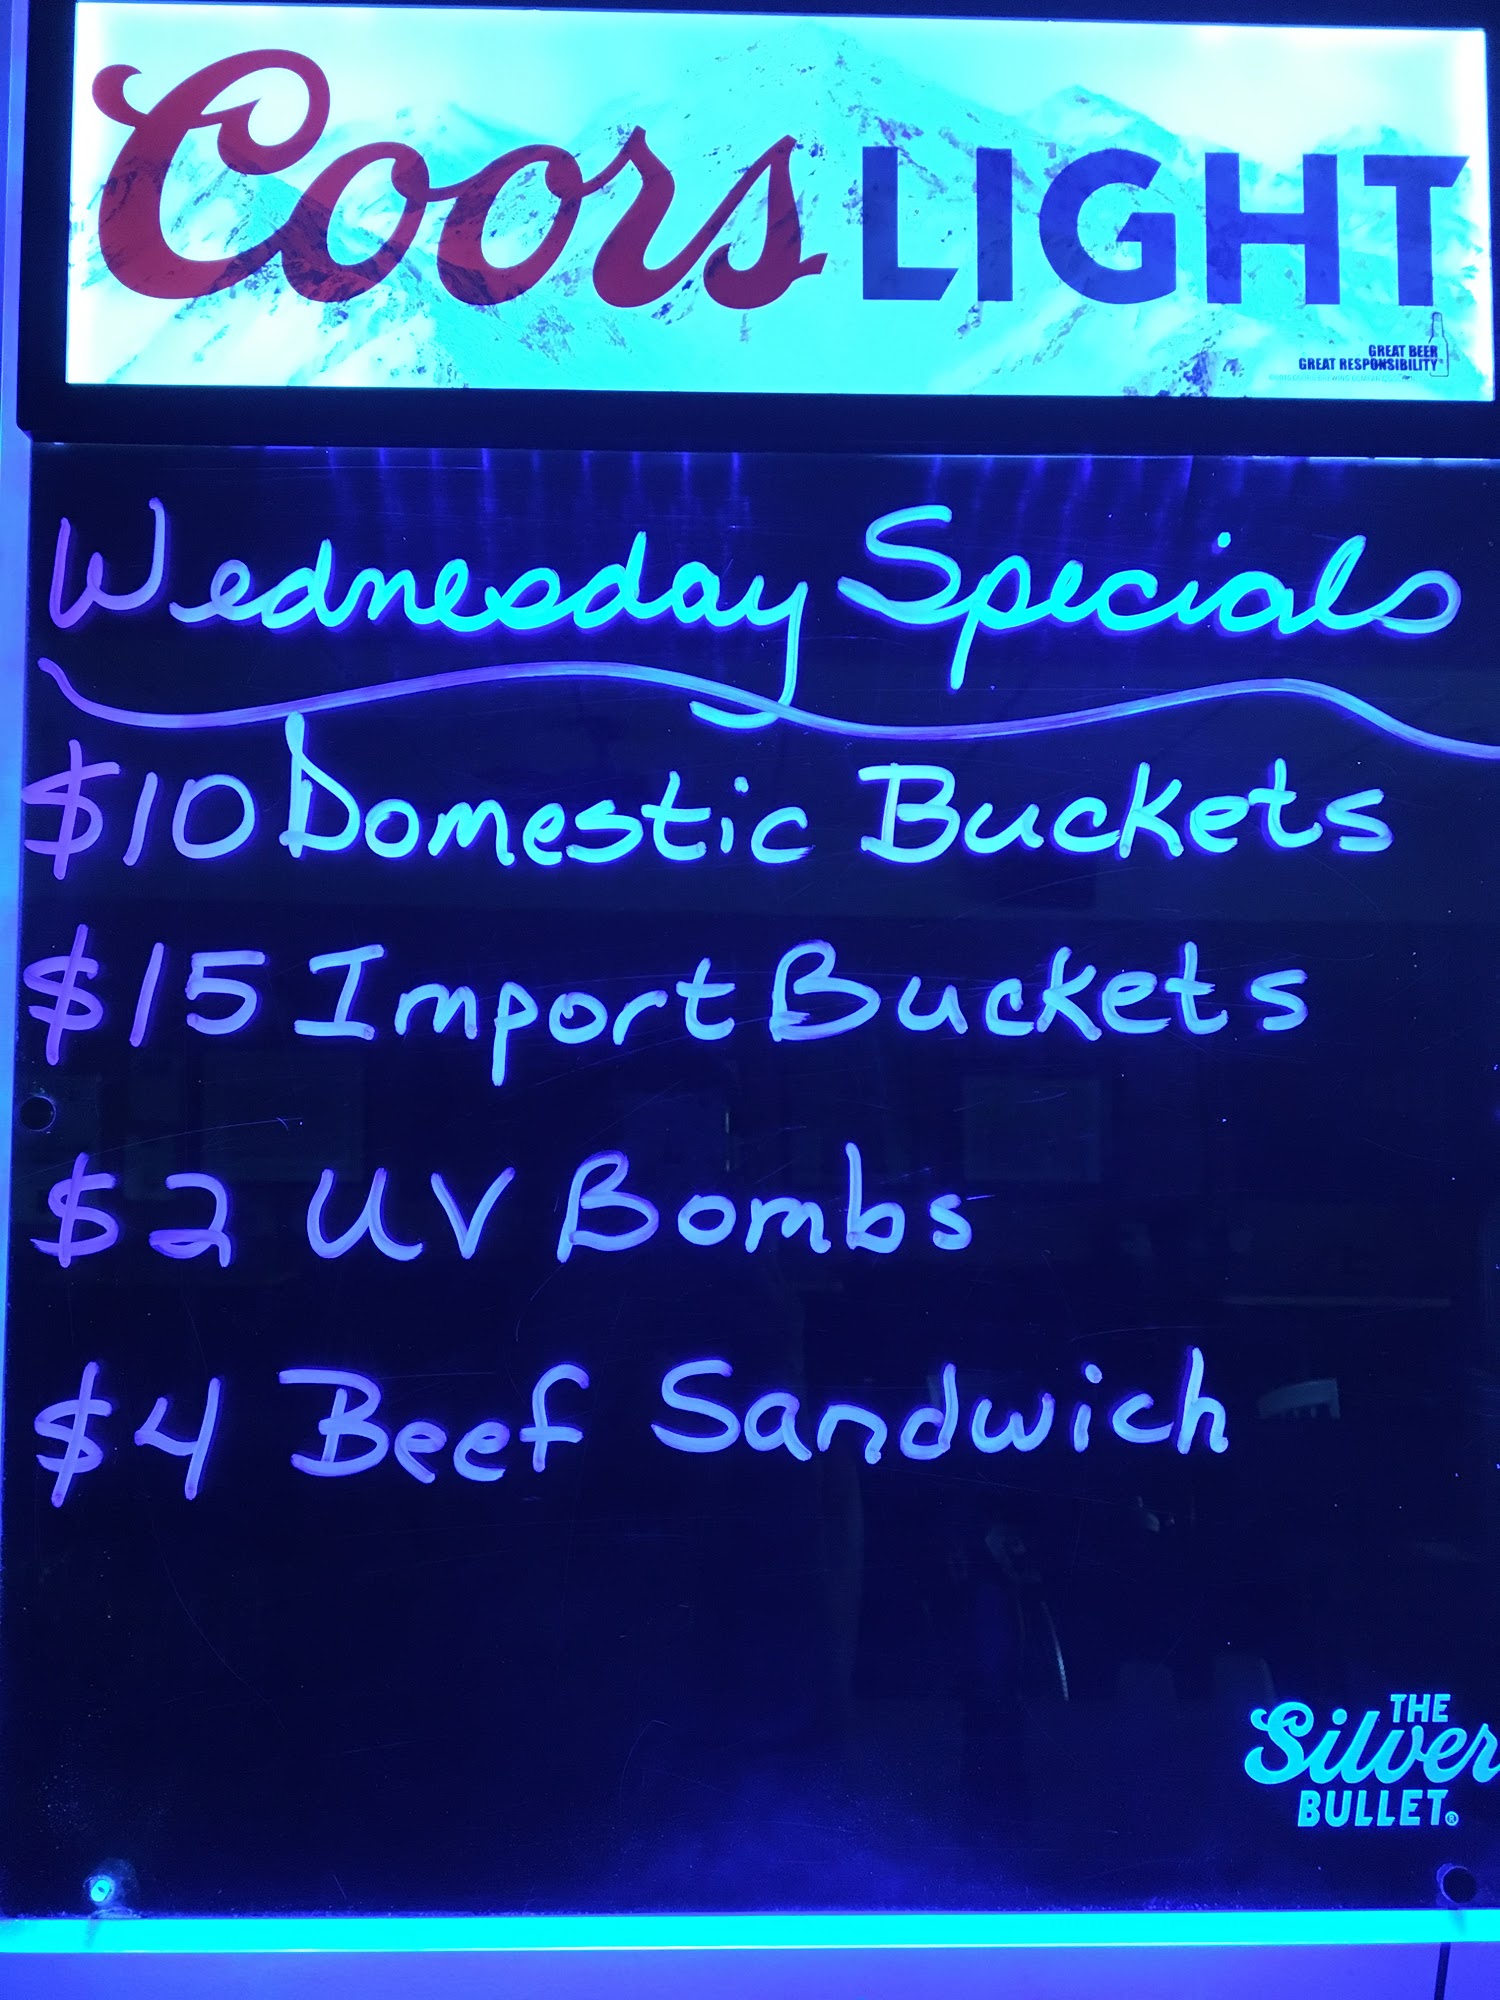 Coors LIGHT
GREAT BEER
GREAT RESPONSIBILITY
Wednesday Specials
$10 Domestic Buckets
$15 Import Buckets
$2 UV Bombs
$4 Beef Sandwich
THE
Silver
BULLET®